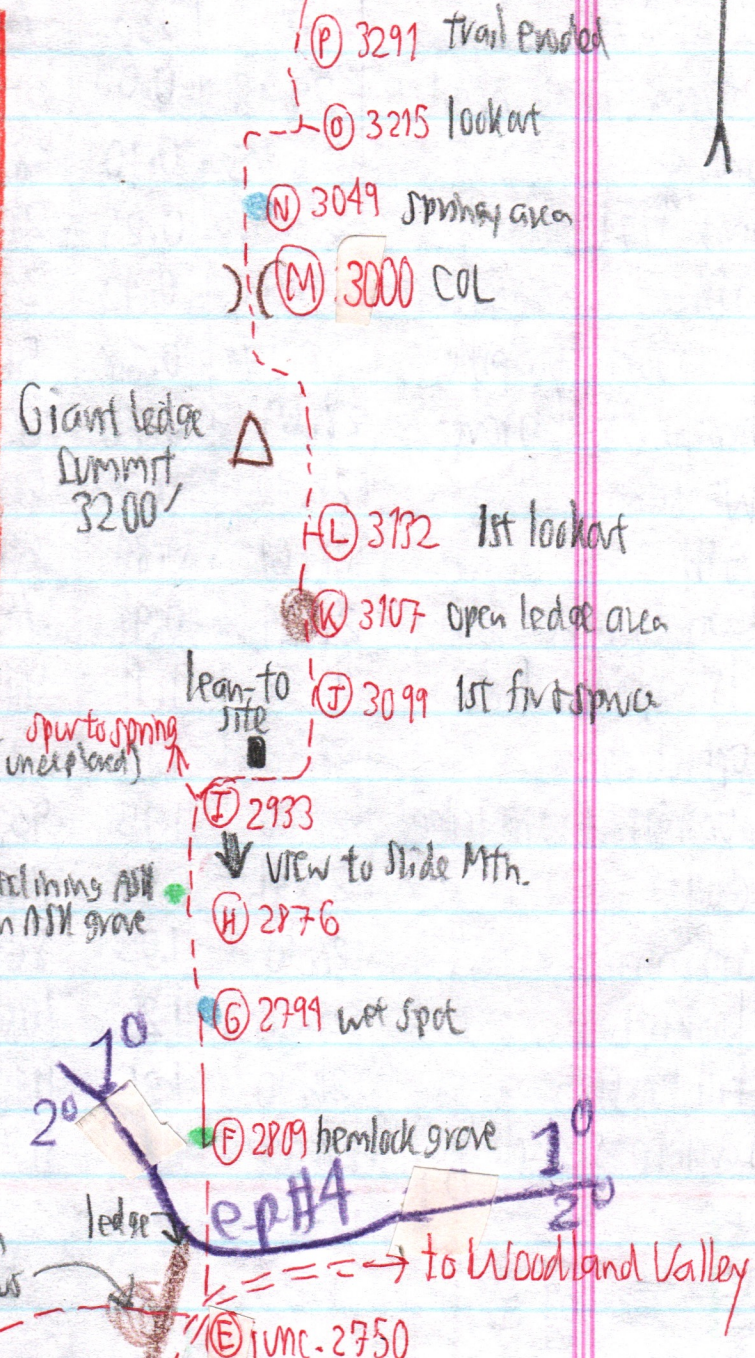 P 3291 trail eroded
O 3215 lookout
N 3049 springy area
M 3000 COL
Giant ledge
Summit
3200'
L 3132 1st lookout
K 3107 open ledge area
lean-to
site
J 3099 1st fir+spruce
spur to spring
(unexplored)
I 2933
view to Slide Mtn.
H 2876
grove
G 2799 wet spot
1°
2°
F 2809 hemlock grove
1°
2°
ep#4
ledge
to Woodland Valley
E junc. 2750